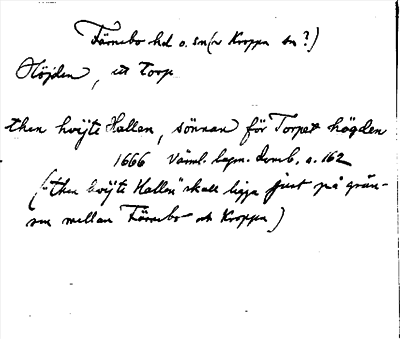 Färnebo hd o. sn (n Kroppa sn ?)
Höjden, ett torp
then hvijte Hallen, sönnan för Torpet högden
1666 Värml. lagm. domb. s. 162
("then hvijte Hallen" skall ligga just på grän-
sen mellan Färnebo och Kroppa)